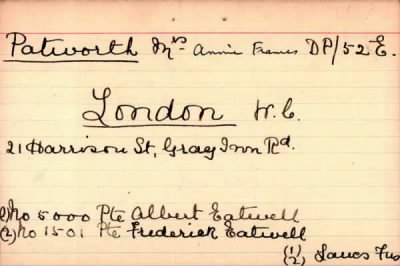 Patworth Mrs Annie Frances DP/52 E.
London W.C.
21 Harrison St, Gray Inn Rd.
(1) No 5000 Pte Albert Eatwell
(2) No 1501 Pte Frederick Eatwell
(1/2) Lancs Fus